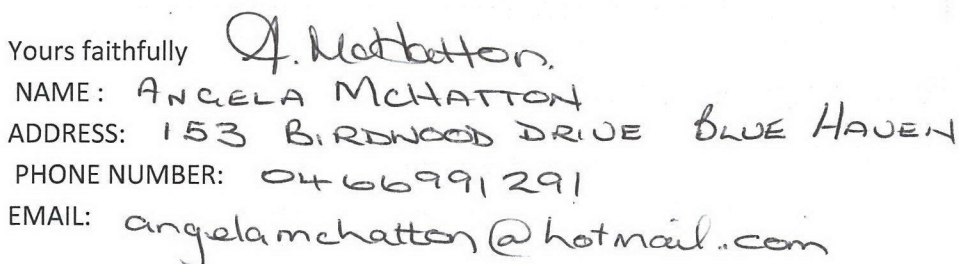 Yours faithfully A. McHatton.
NAME: ANGELA MCHATTON
ADDRESS: 153 BIRDWOOD DRIVE BLUE HAVEN
PHONE NUMBER: 0466991291
EMAIL: angelamchatton@hotmail.com